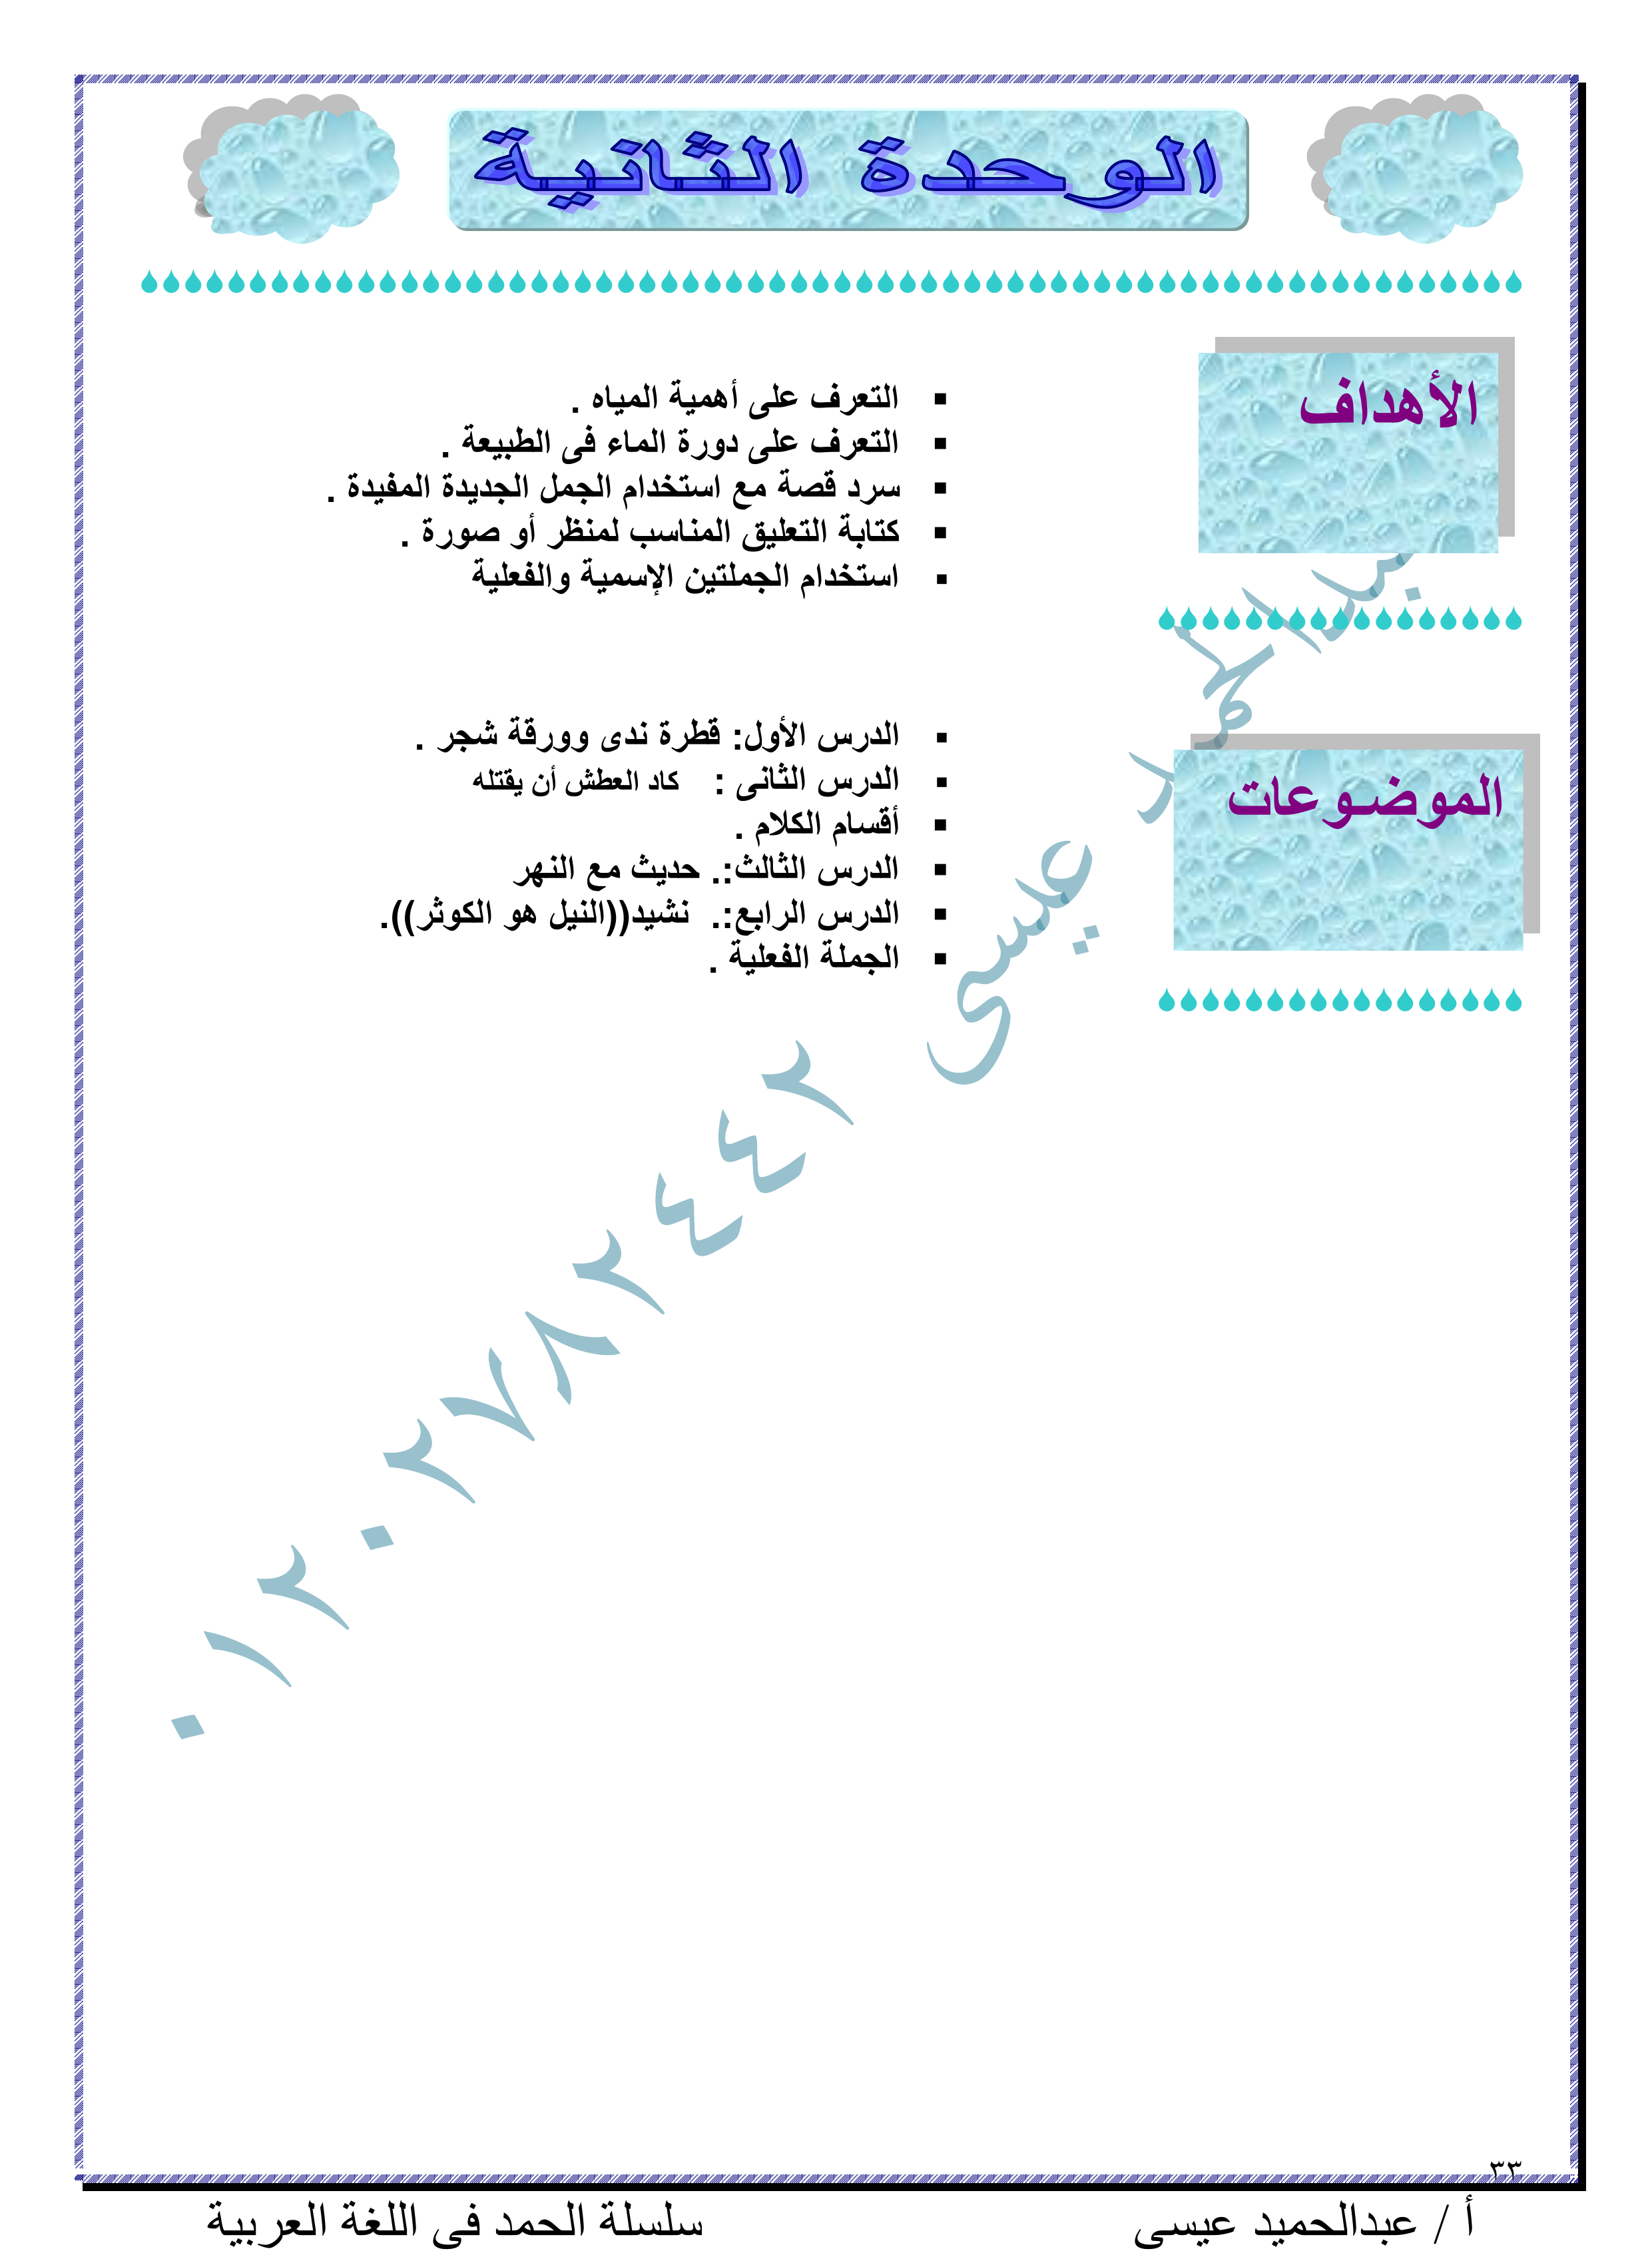 الوحدة الثانية
الأهداف
التعرف على أهمية المياه .
التعرف على دورة الماء فى الطبيعة .
سرد قصة مع استخدام الجمل الجديدة المفيدة .
كتابة التعليق المناسب لمنظر أو صورة .
استخدام الجملتين الإسمية والفعلية
الموضوعات
الدرس الأول: قطرة ندى وورقة شجر .
الدرس الثانى : كاد العطش أن يقتله
أقسام الكلام .
الدرس الثالث:. حديث مع النهر
الدرس الرابع:. نشيد((النيل هو الكوثر)).
الجملة الفعلية .
عيسى ٠١٢٠٢٧٨٢٤٤٢
٣٣
أ / عبدالحميد عيسى سلسلة الحمد فى اللغة العربية